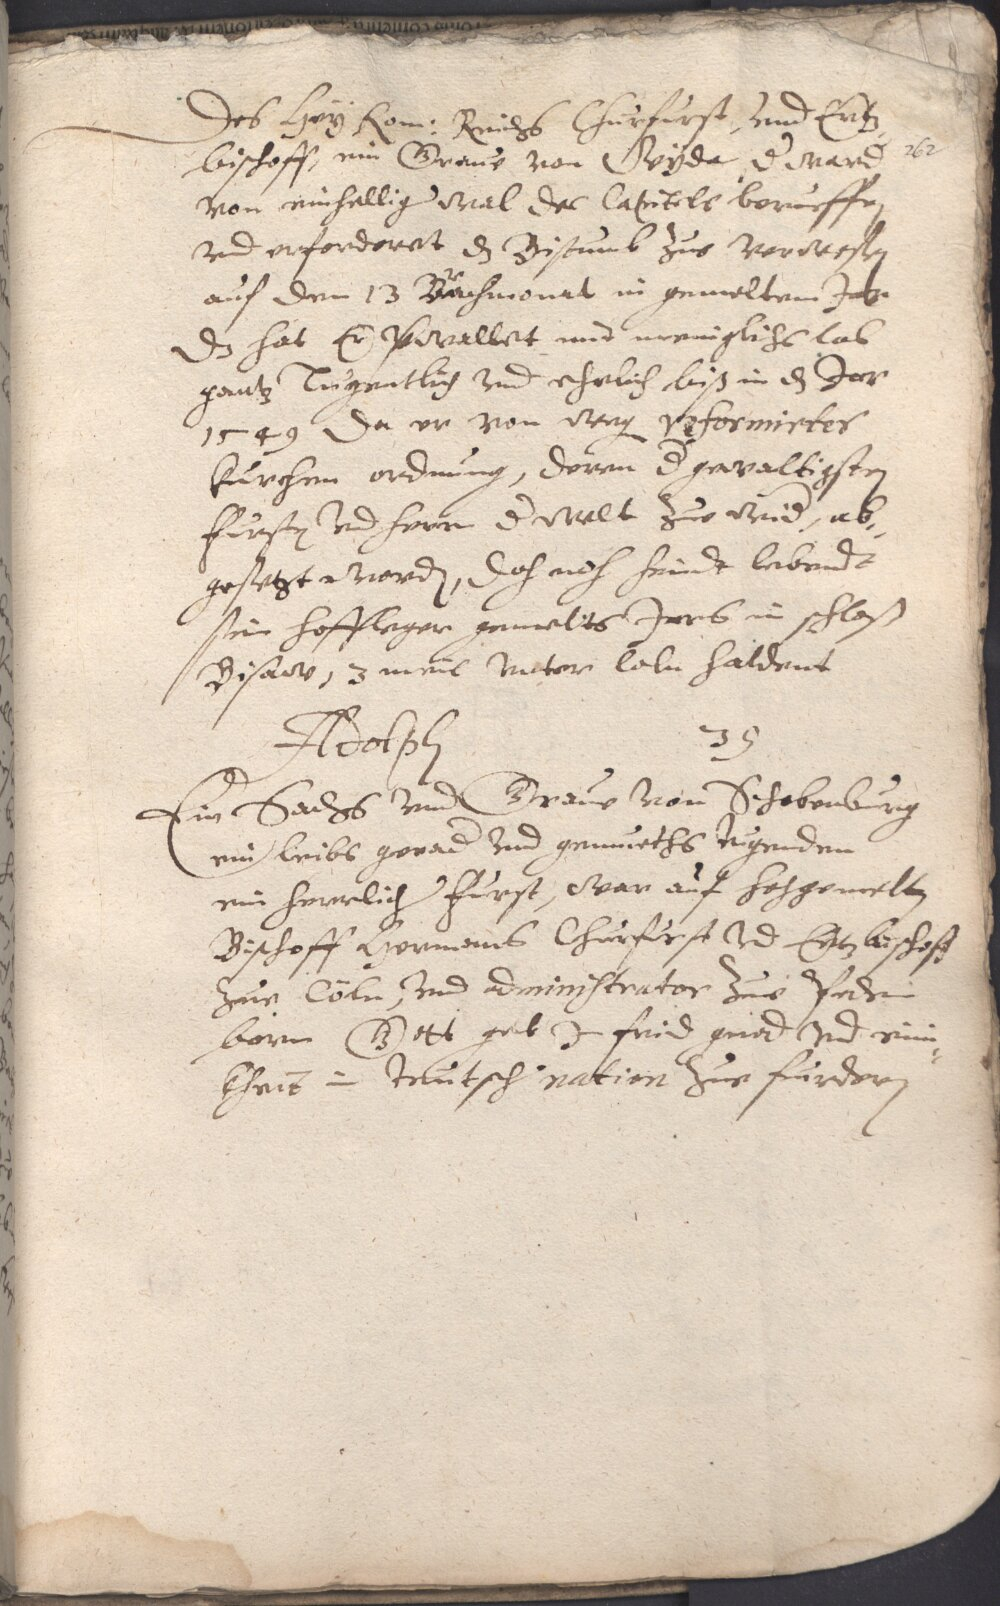 Des Hey: Rom: Reichs Churfurst, und Ertz
bischoff, ein Grave von Wÿda, d ward
262
von einhellig wal des Capitels beruoffen
vnd erfordert dz Bistumb zue verwesen
auf den 13 Brachmonat in gemeltem Jar
Dz hat Er verwaltet mit meniglichs lob
gantz Tugentlich vnd ehrlich biß in dz Jar
1549 Da er von weg reformirter
kirchen ordnung, deren d gewaltigsten
fursten vnd herrn d welt zue wid, ab-
gesetzt worden, doch noch heindt lebendt
sein hoffleger gemelts Jars in schloß
Bisaw, 3 meil vnter Coln haldent
Adolph 39
Ein Sachs vnd Grave von Schobenburg
ein leibs gerad vnd gemueths tugenden
ein herrlich Furst, war auf hochgemelten
Bischoff Hermans Churfurst vnd Ertzbischoff
zue Cöln, vnd administrator zue Pader
born Gott geb Im frid gnod vnd eini-
kheit in teutsch nation zue furdern